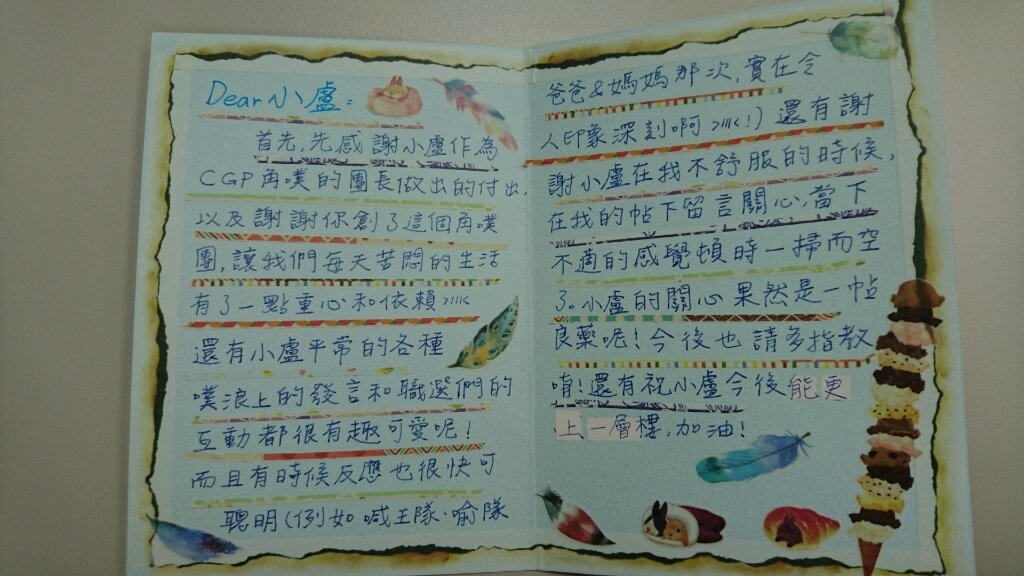 Dear 小盧:
首先,先感謝小盧作為
CGP角噗的團長做出的付出,
以及謝謝你創了這個角噗
團,讓我們每天苦悶的生活
有了一點重心和依賴>///<
還有小盧平常的各種
噗浪上的發言和職選們的
互動都很有趣可愛呢!
而且有時候反應也很快可
聰明(例如喊王隊、喻隊
爸爸&媽媽那次,實在令
人印象深刻啊>///<!)還有謝
謝小盧在我不舒服的時候,
在我的帖下留言關心,當下
不適的感覺頓時一掃而空
了。小盧的關心果然是一帖
良藥呢!今後也請多指教
唷!還有祝小盧今後能更
上一層樓,加油!